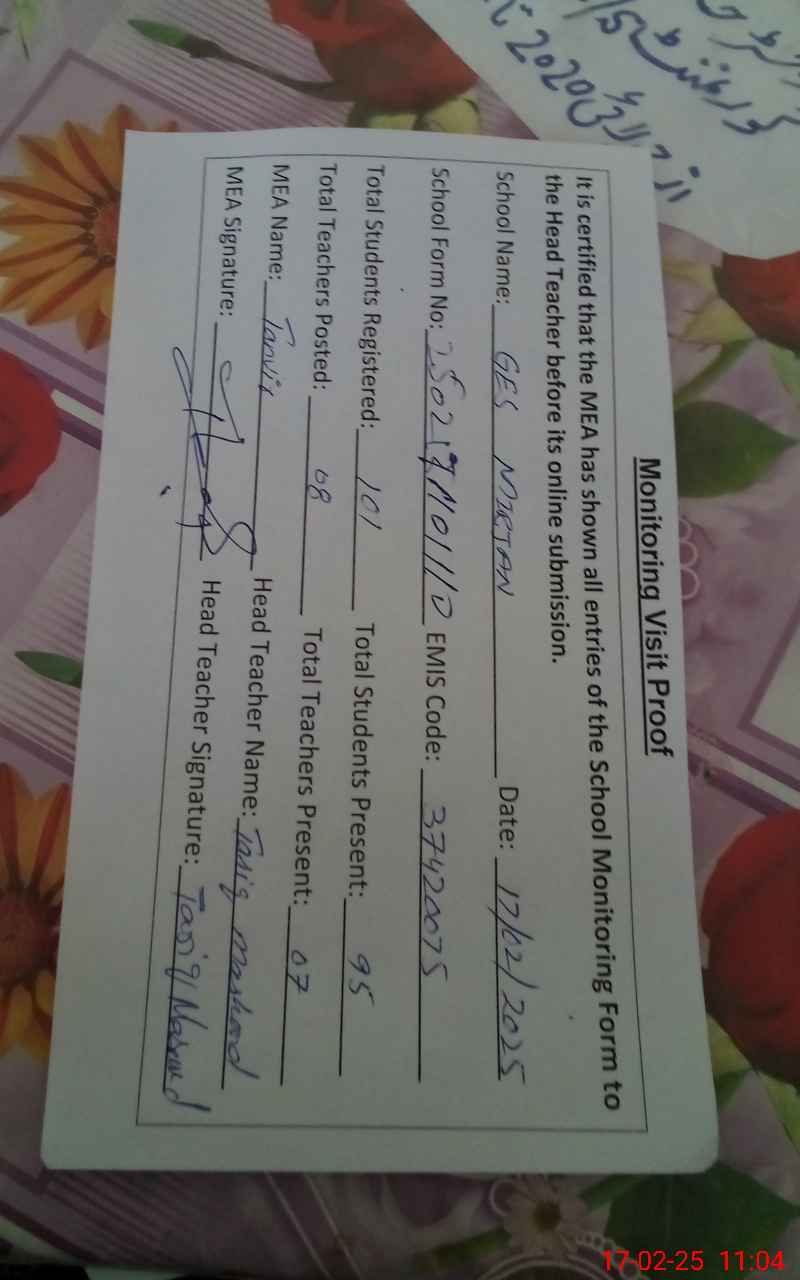 Monitoring Visit Proof
It is certified that the MEA has shown all entries of the School Monitoring Form to
the Head Teacher before its online submission.
School Name: GES MIRJAN Date: 17/02/2025
School Form No: EMIS Code: 37420075
Total Students Registered: 101 Total Students Present: 95
Total Teachers Posted: 08 Total Teachers Present: 07
MEA Name: Tanvir Head Teacher Name: Tasiq Mashood
MEA Signature: Head Teacher Signature: Tasiq Masood
2020
17-02-25 11:04